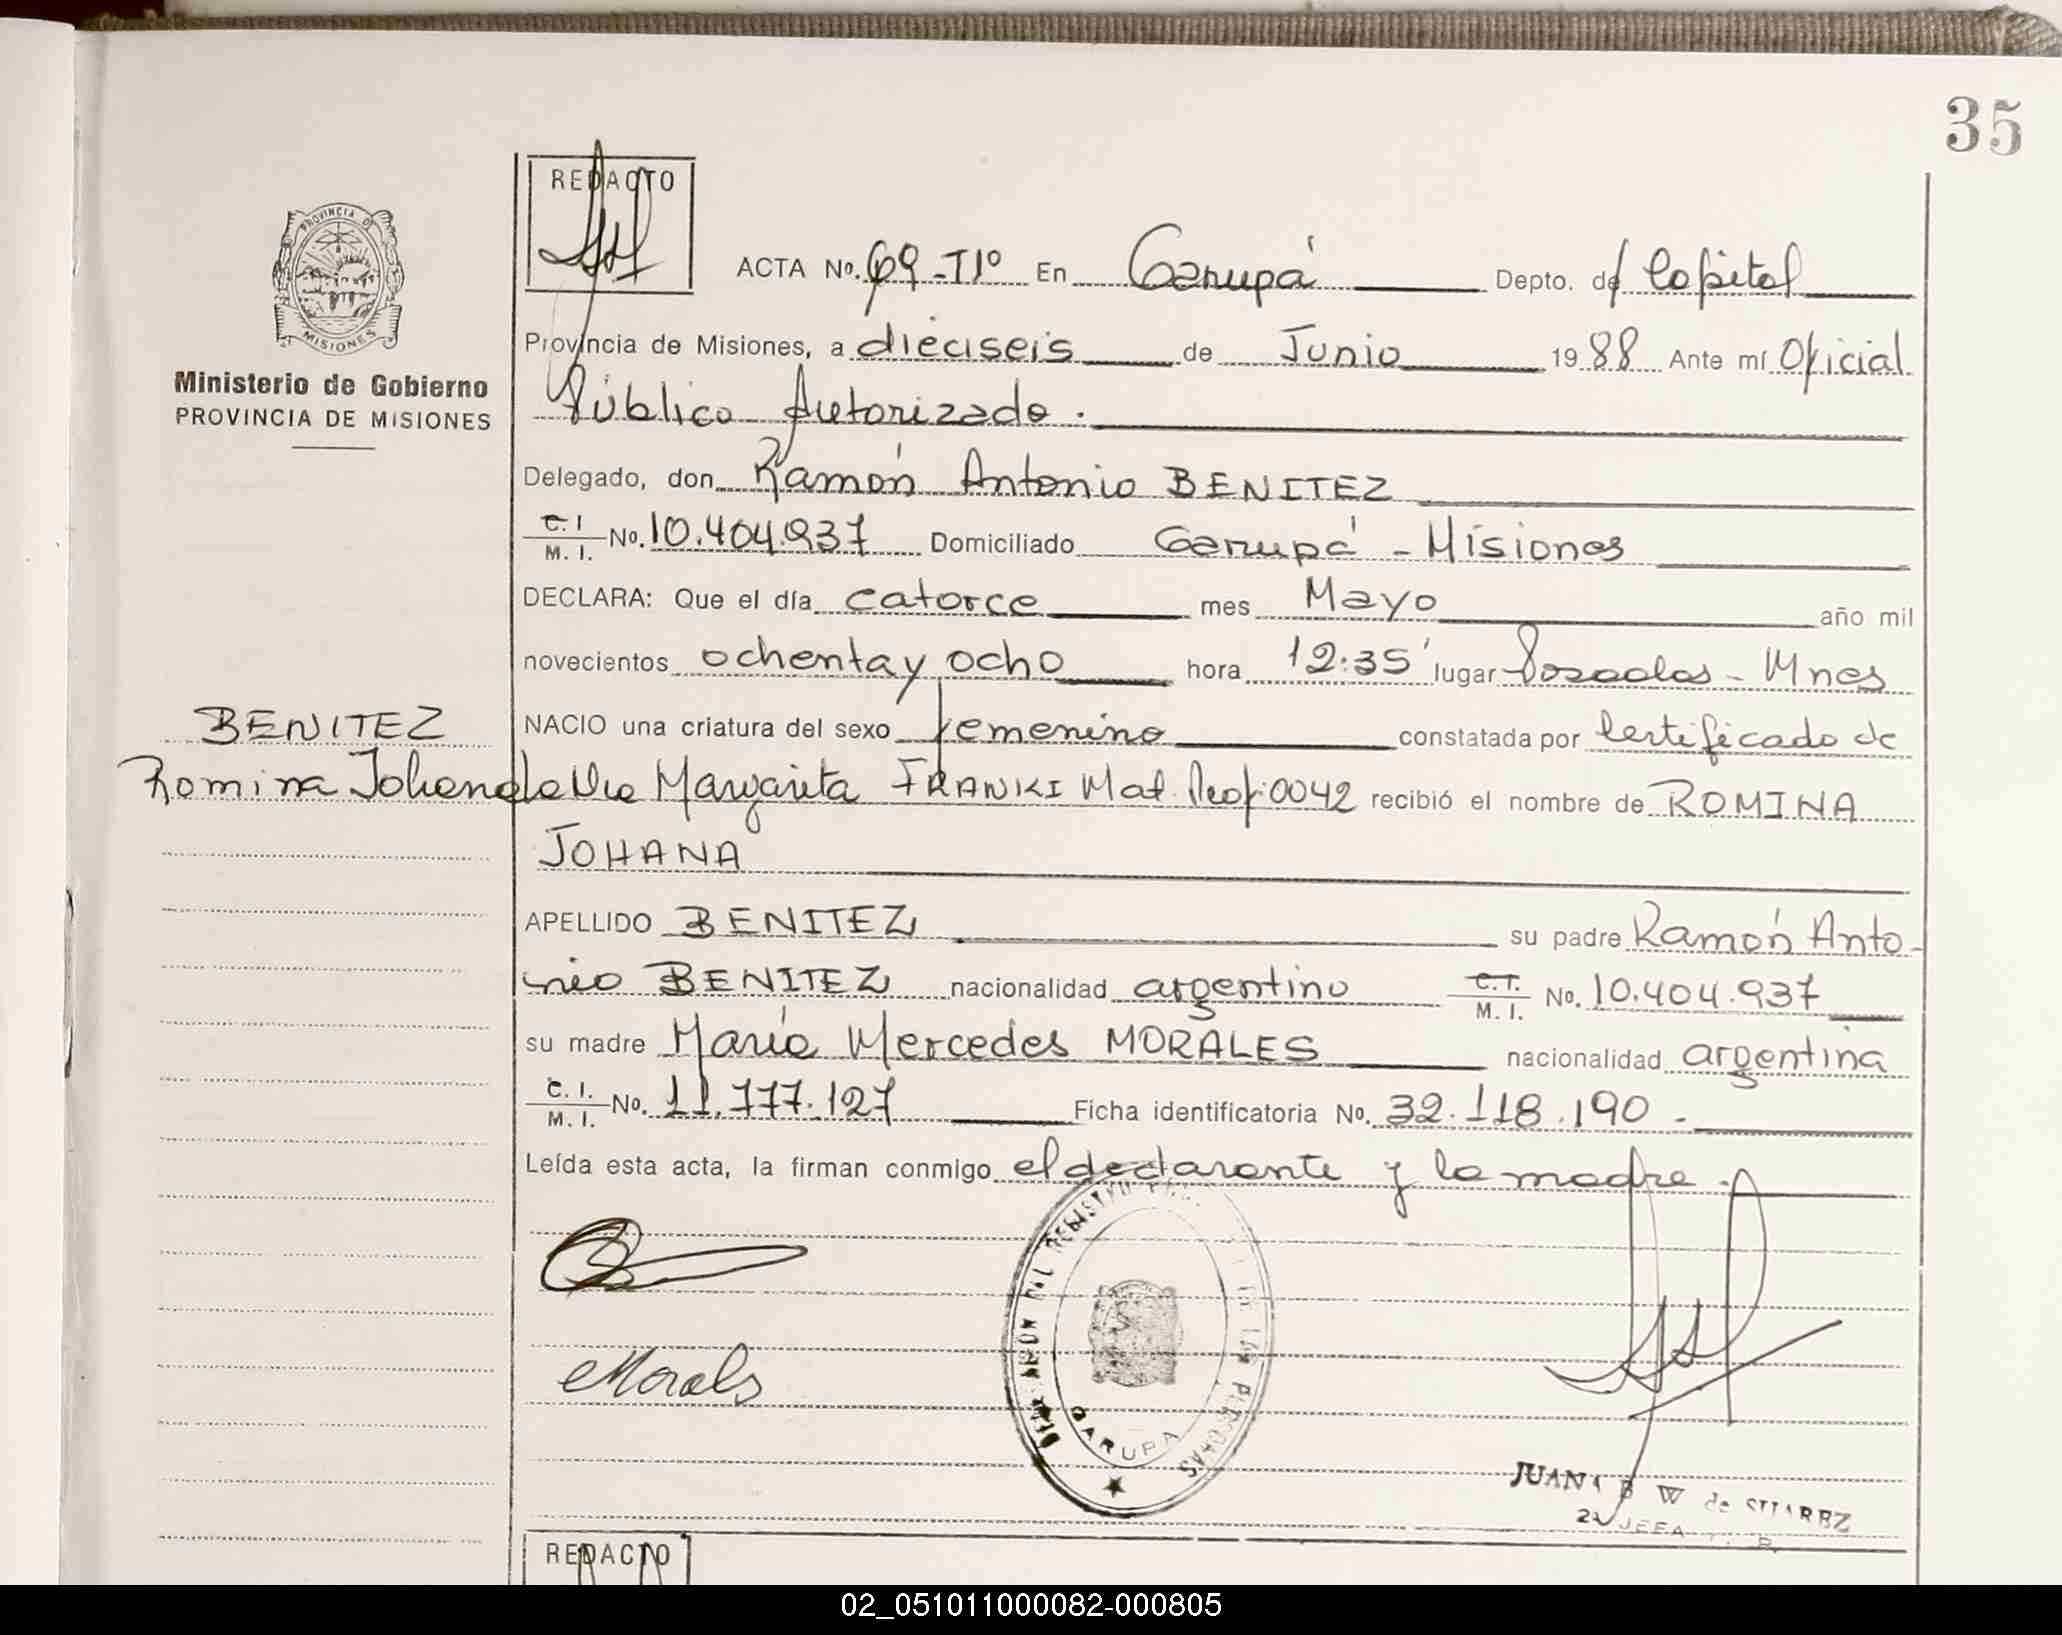 35
PROVINCIA DE
MISIONES
Ministerio de Gobierno
PROVINCIA DE MISIONES
REDACTO
ACTA No. 69-IIº En Garupá Depto. de Capital
Provincia de Misiones, a dieciseis de Junio 1988 Ante mí Oficial
Público Autorizado.
Delegado, don Ramón Antonio BENITEZ
C.I M. I. No. 10.404.937 Domiciliado Garupá - Misiones
DECLARA: Que el día catorce mes Mayo año mil
novecientos ochenta y ocho hora 12:35 lugar Posadas - Mnes
NACIO una criatura del sexo femenino constatada por Certificado de
BENITEZ
Romina Johana
la Margarita FRANKI Mat. Prof. 0042 recibió el nombre de ROMINA
JOHANA
APELLIDO BENITEZ su padre Ramón Anto-
nio BENITEZ nacionalidad argentino C.I. M. I. No. 10.404.937
su madre María Mercedes MORALES nacionalidad argentina
C. I. M. I. No. 11.777.127 Ficha identificatoria No. 32.118.190 -
Leída esta acta, la firman conmigo el declarante y la madre.
Morales
GARUPA
JUANA B W de SUAREZ
REDACTO
02_051011000082-000805